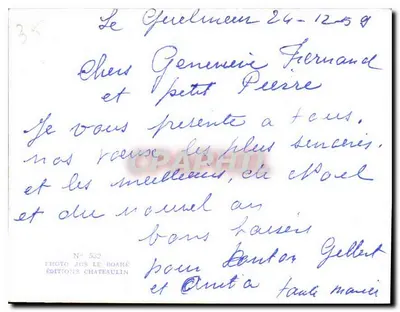 35
Le Guelmeur 24-12-59
Chers Geneviève Fernand
et petit Pierre
Je vous présente a tous.
nos vœux les plus sincères.
et les meilleurs, de Noel
et du nouvel an
bons baisers
pour Gilbert
et Anita tante Marie
N° 537
PHOTO JOS LE DOARÉ
ÉDITIONS CHATEAULIN